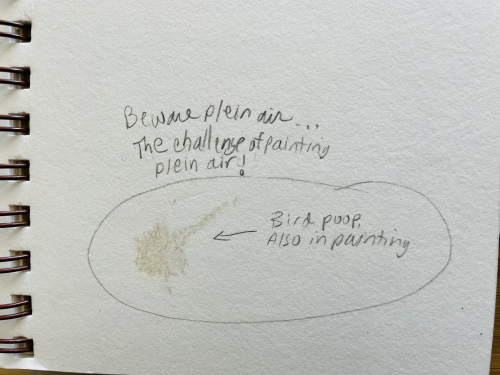 Beware plein air...
The challenge of painting
plein air!
Bird poop.
Also in painting